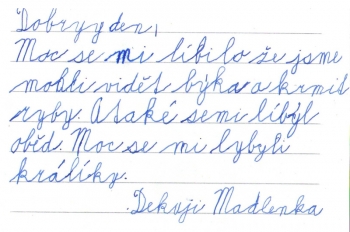 Dobryy den,
Moc se mi líbilo že jsme
mohli vidět býka a krmit
ryby. A také semi líbÿl
oběd. Moc se mi lybyli
králíky.
Dekuji Madlenka